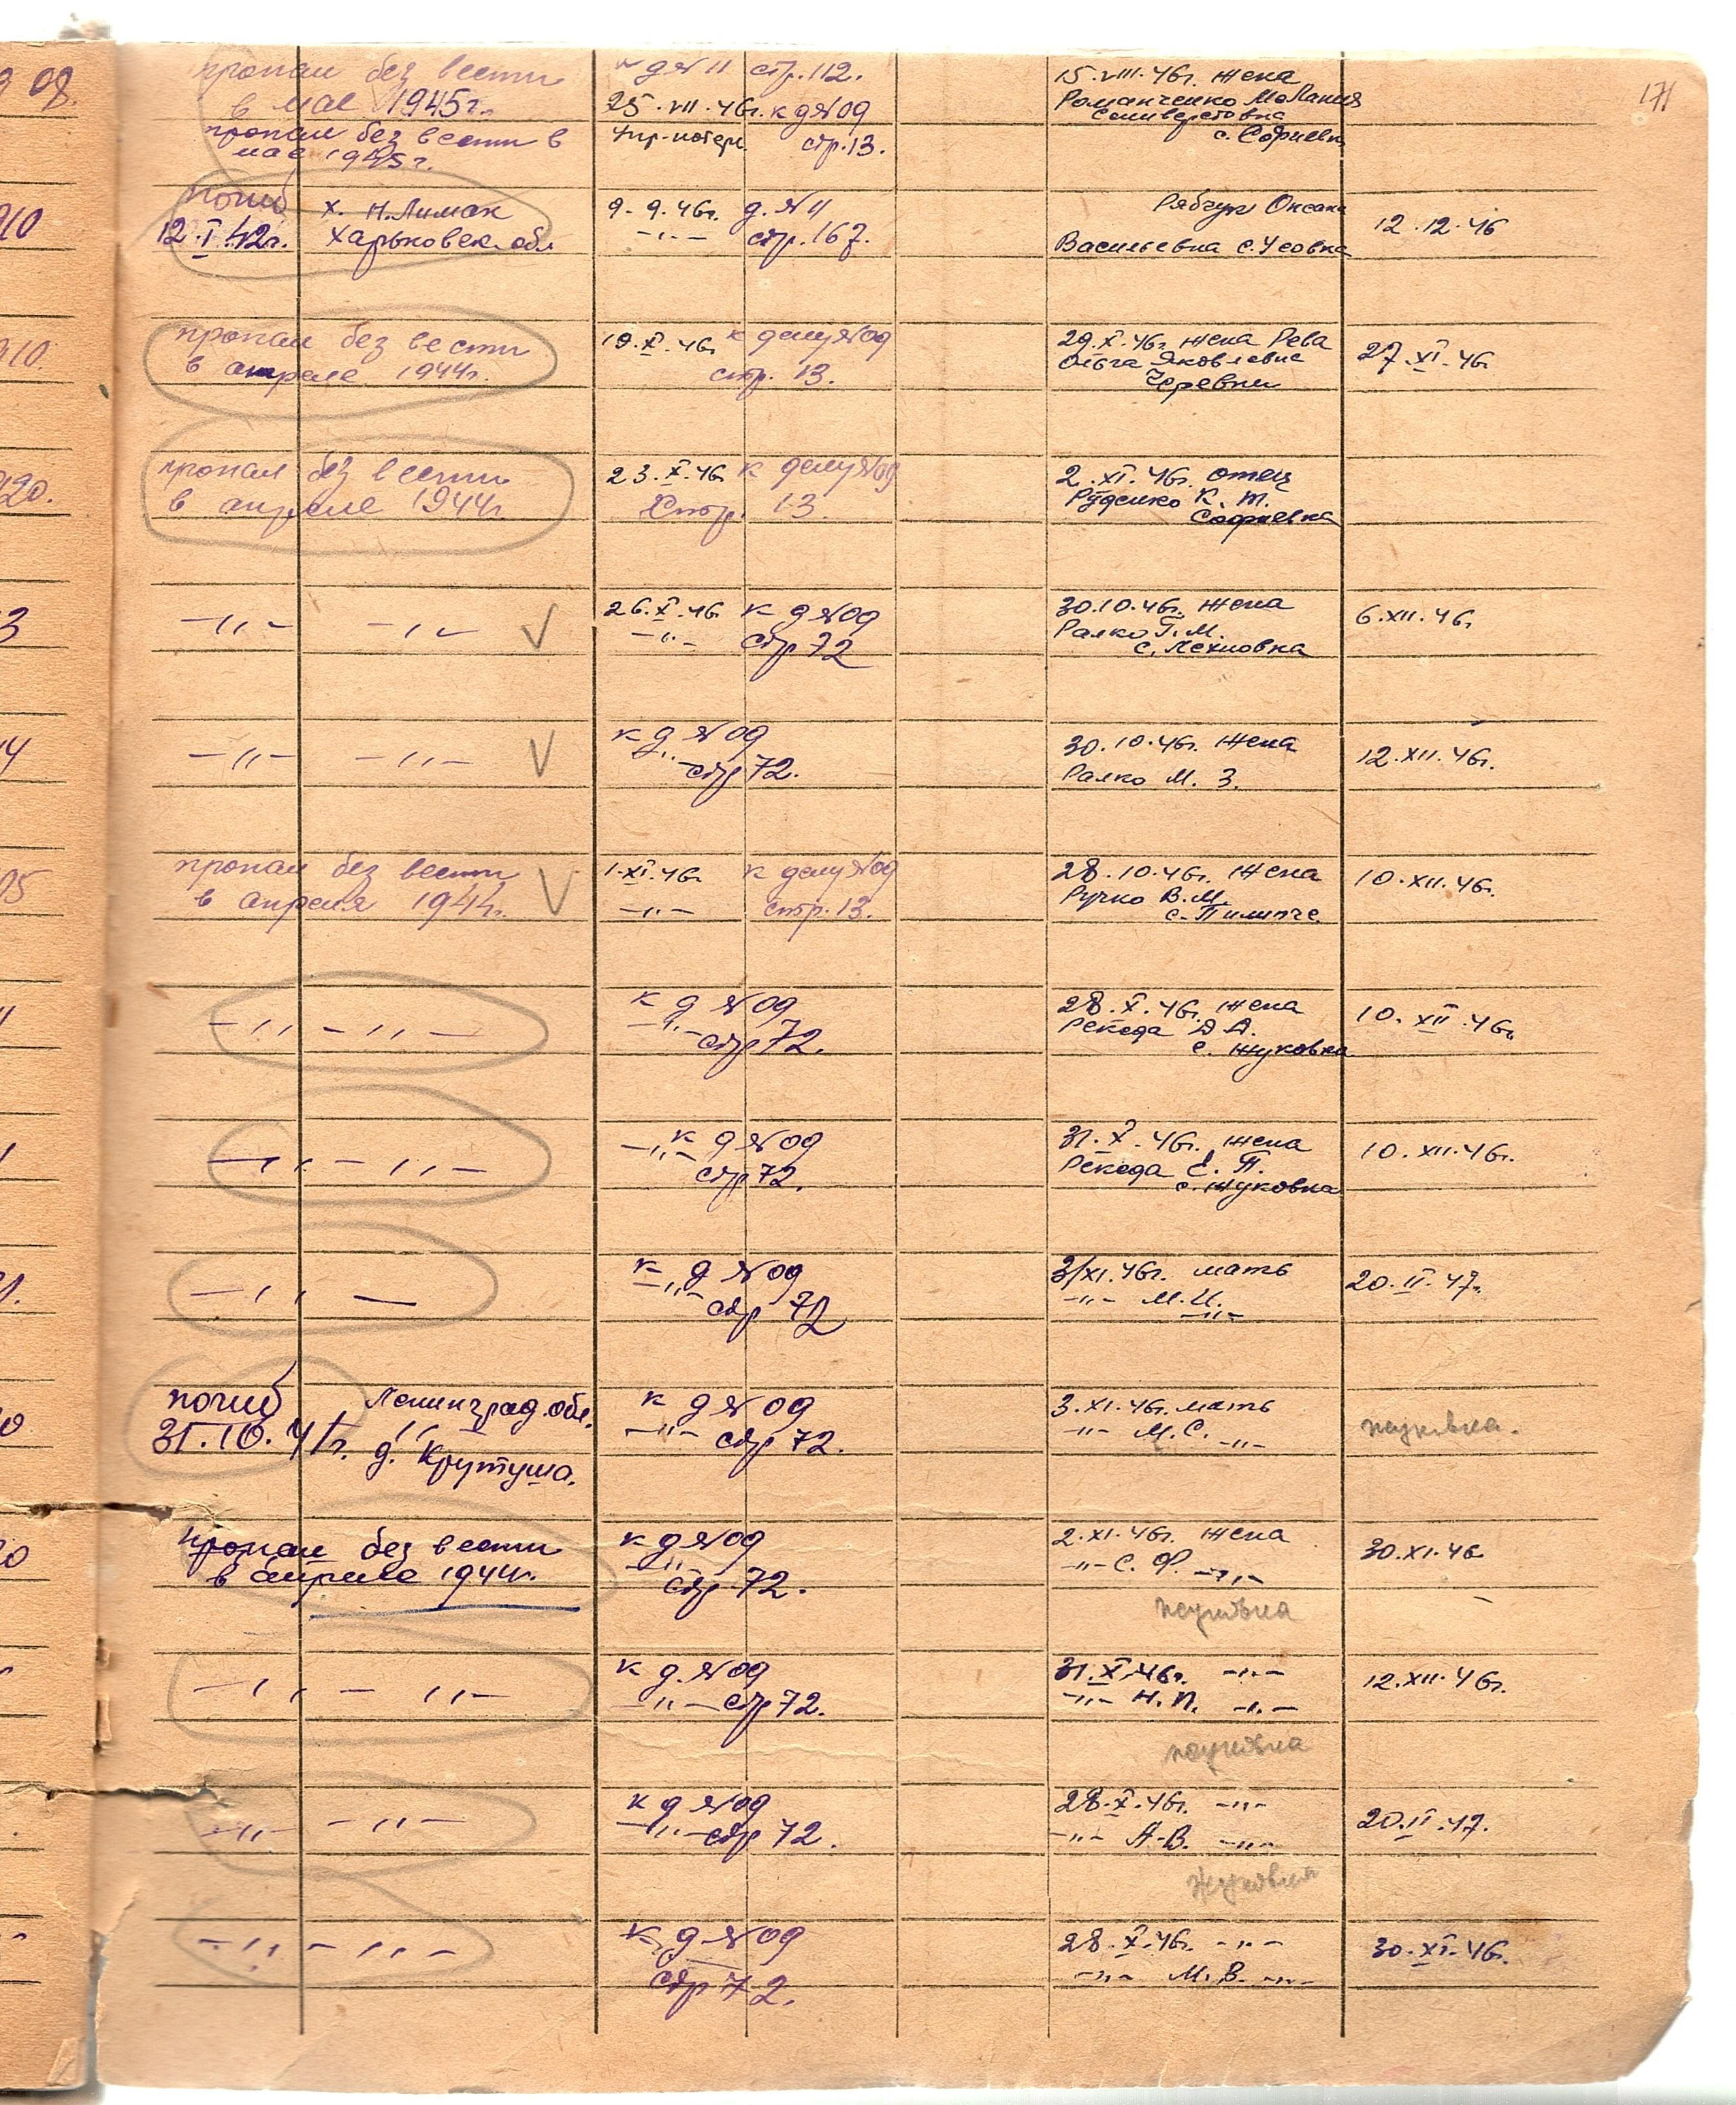 171
08.
пропал без вести
в мае 1945г.
пропал без вести в
мае 1945г.
д №11 стр. 112.
25.VII.46г. к д №09
Упр. потерь. стр. 13.
15.VIII.46г. жена
Романченко Мелания
Селиверстовна
с. Софиевка
910
погиб х. Н.Лиман
12.I.42г. Харьковск. обл
9.9.46г. д. №11
-"- стр. 167.
Рябчук Оксана
Васильевна с. Усовка
12.12.46
910.
пропал без вести
в апреле 1944г.
19.X.46г к делу №09
стр. 13.
29.X.46г. жена Рева
Ольга Яковлевна
Черевки
27.XI.46г
920.
пропал без вести
в апреле 1944г.
23.X.46 к делу №09
Стр. 13.
2.XI.46г. отец
Руденко К. Т.
Софиевка
3
-"- -"- V
26.X.46 к д №09
-"- стр 72
30.10.46г. жена
Ралко Г. М.
с. Лехновка
6.XII.46г
4
-"- -"- V
к д №09
-"- стр 72.
30.10.46г. жена
Ралко М. З.
12.XII.46г.
05
пропал без вести V
в апреля 1944г.
1.XI.46г к делу №09
-"- стр. 13.
28.10.46г. жена
Ручко В. М.
с. Пилипче
10.XII.46г.
-"- -"-
к д №09
-"- стр 72.
28.X.46г. жена
Рекеда А. А.
с. Жуковка
10.XII.46г.
-"- -"-
к д №09
-"- стр 72.
31.X.46г. жена
Рекеда Е. П.
с. Жуковка
10.XII.46г.
-"-
к д №09
-"- стр 72
3/XI.46г. мать
-"- М.И. -"-
20.II.47г.
0
погиб Ленинград. обл.
31.10.41г. д. Крутуша.
к д №09
-"- стр 72.
3.XI.46г. мать
-"- М.С. -"-
жуковка.
0
пропал без вести
в апреле 1944г.
к д №09
-"- стр 72.
2.XI.46г. жена
-"- С. Ф. -"-
30.XI.46
жуковка
-"- -"-
к д. №09
-"- стр 72.
31.X.46г. -"-
-"- Н. П. -"-
12.XII.46г.
жуковка
-"- -"-
к д №09
-"- стр 72.
28.X.46г. -"-
-"- А.В. -"-
20.II.47.
Жуковка
-"- -"-
к д №09
стр 72.
28.X.46г. -"-
-"- М. В. -"-
30.XI.46г.